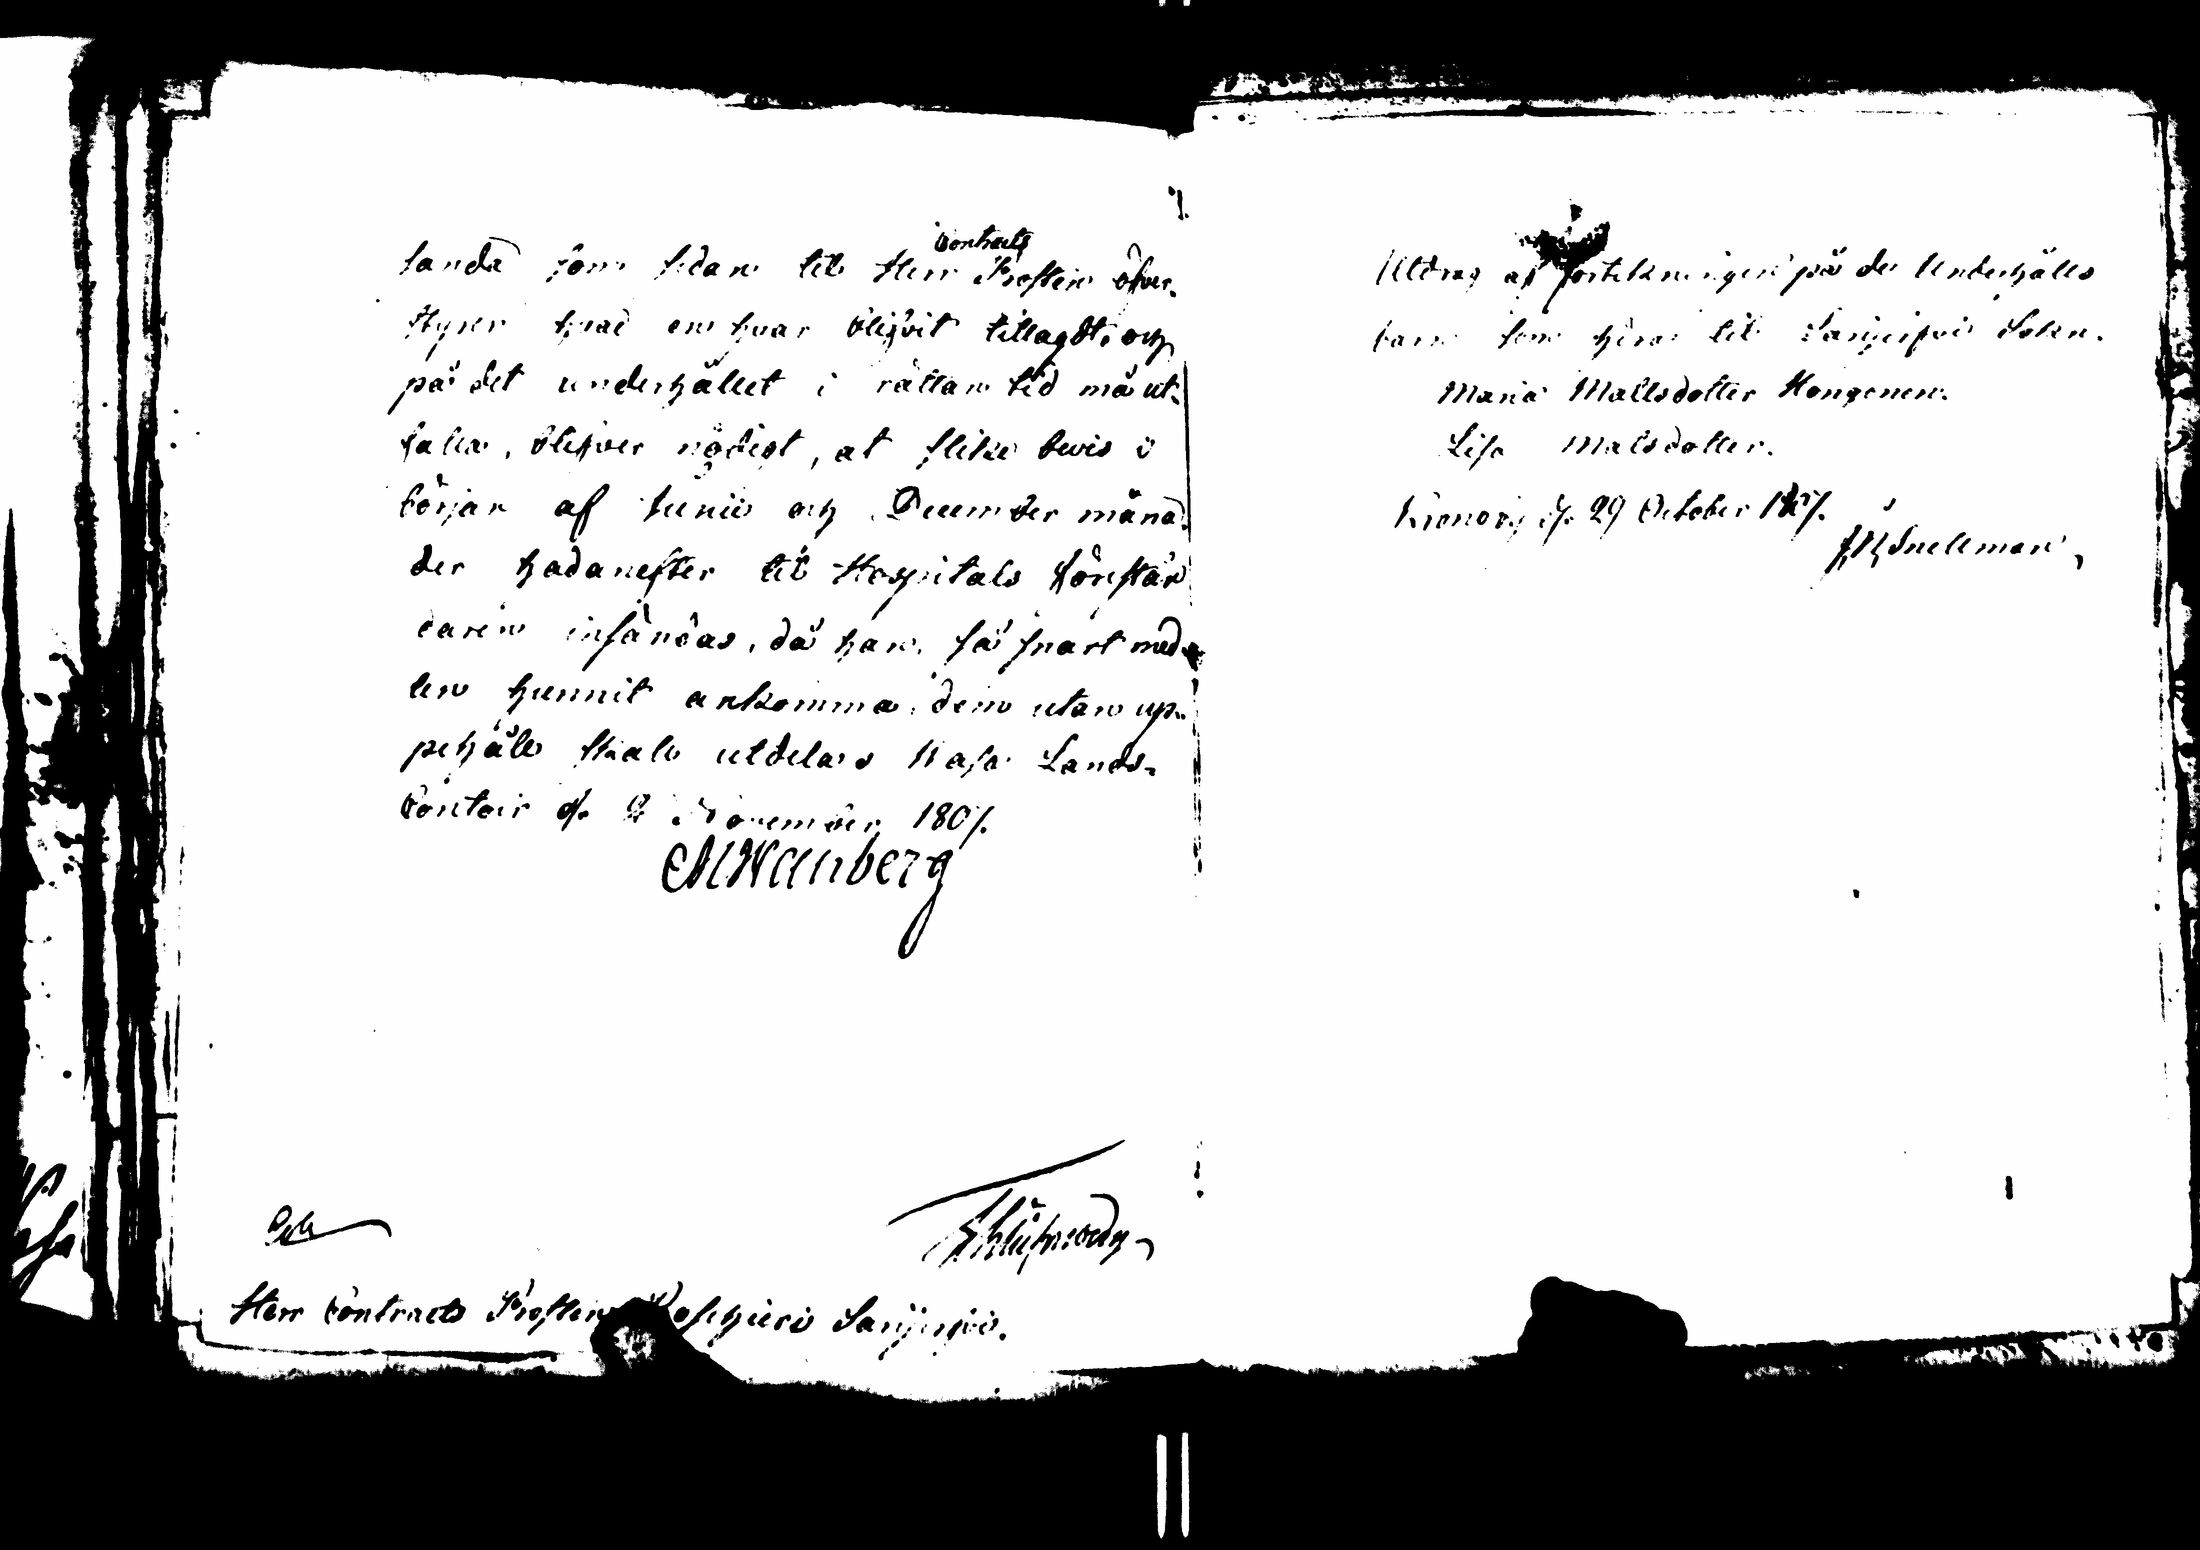 sända som sedan til Herr Contracts Prosten öfver-
styrer hvad en hvar blifvit tillagdt, och
på det underhållet i rättan tid må ut-
falla, blifver nödigt, at slike bevis i
början af Junii och December måna-
der hädanefter til Hospitals Förestån
daren insändas, då han, så snart med-
len hunnit ankomma, dem utan up-
pehåll skall utdela. Wasa Lands-
Contoir d. 2 November 1807.
CMWanberg
Herr Contracts Prosten Saarijervi.
Utdrag af förtekningen på de Underhålls
barn som höra til Sarijerfvi Sokn.
Maria Mattsdotter Hongonen.
Lisa Matsdotter.
Kronoby d. 29 October 1807.
Snellman